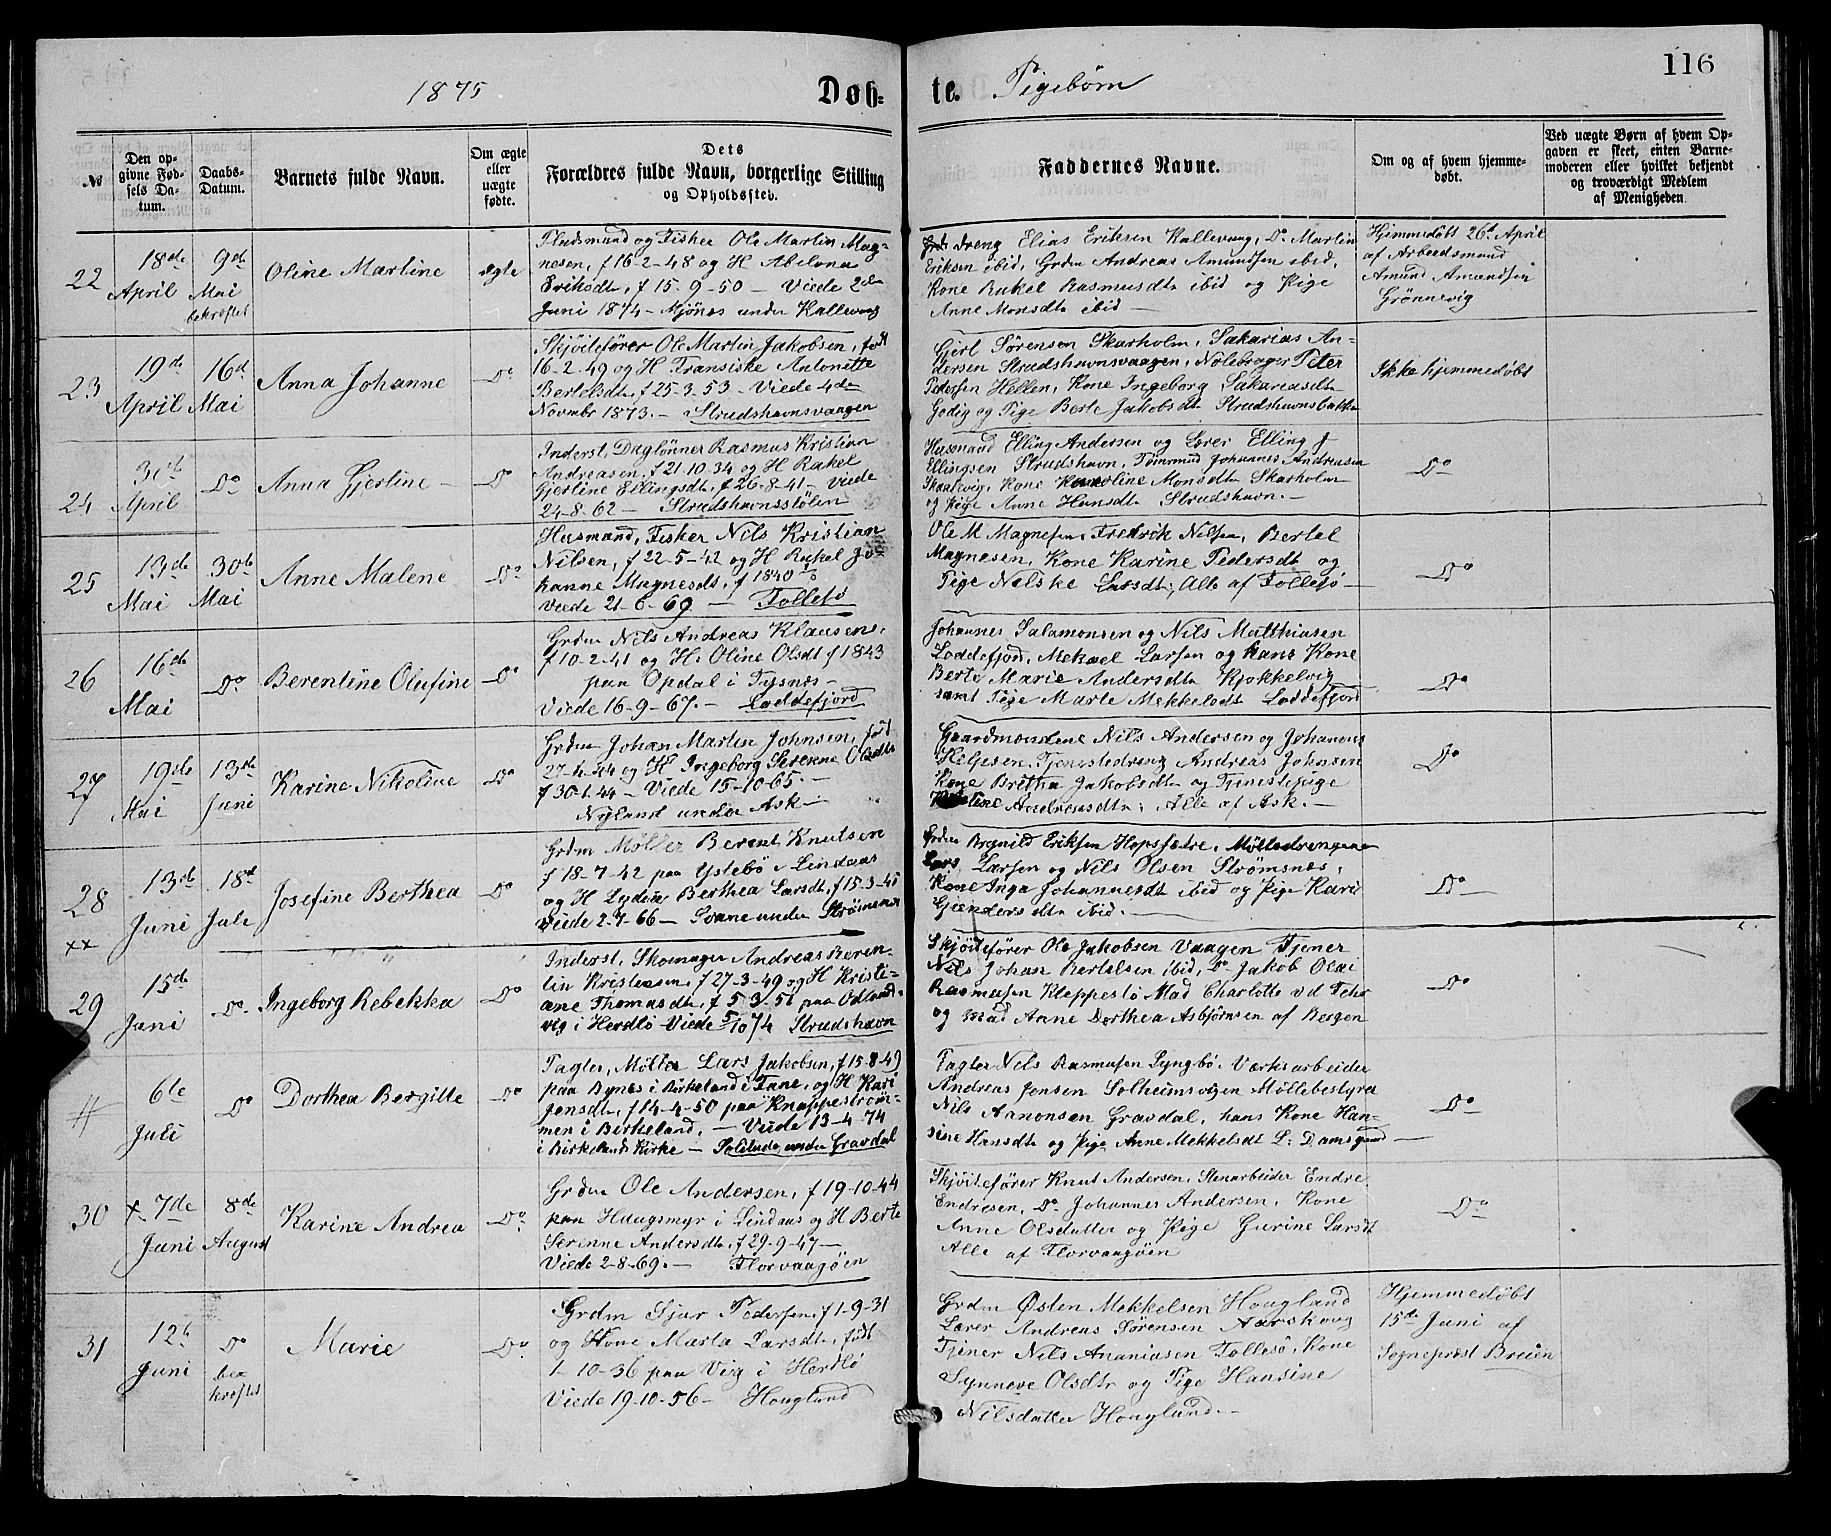 116
1875 Døb= te. Pigebørn
№
Den op-
givne Fød-
sels Da-
tum.
Daabs-
Datum.
Barnets fulde Navn.
Om ægte
eller
uægte
fødte.
Dets
Forældres fulde Navn, borgerlige Stilling
og Opholdssted.
Faddernes Navne.
Om og af hvem hjemme-
døbt.
Ved uægte Børn af hvem Op-
gaven er skeet, enten Barne-
moderen eller hvilket bekjendt
og troværdigt Medlem
af Menigheden.
22
18de
April
9de
Mai
bekræftet
Oline Martine
ægte
Pladsmand og Fisker Ole Martin Mag-
nesen, f 16-2-48 og H Abelona
Eriksdtr, f 15-9-50 — Viede 2den
Juni 1874 — Mjönes under Kallevaag
Dreng Elias Eriksen Kallevaag, Do Martin
Eriksen ibid, Grdm Andreas Amundsen ibid,
Kone Rakel Rasmusdtr ibid og Pige
Anne Monsdtr ibid —
Hjemmedöbt 26de April
af Arbeidsmand
Amund Amundsen
Grönnevig
23
19de
April
16de
Mai
Anna Johanne
Do
Skjöitefører Ole Martin Jakobsen, född
16-2-49 og H Fransiske Antonette
Bertelsdtr, f 25-3-53 — Viede 4de
Novmbr 1873. — Strudshavnsvaagen
Gjert Sörensen Skarholm, Sakarias An-
dersen Strudshavnsvaagen, Peter
Pedersen Hellen, Kone Ingeborg Sakariasdtr
Godvig og Pige Berte Jakobsdtr Strudshavnsbakken
Ikke hjemmedöbt
24
30te
April
Do
Anna Gjertine —
Do
Inderst, Daglönner Rasmus Kristian
Andreasen, f 21-10-34 og H Rakel
Gjertine Ellingsdtr, f 26-8-41 — Viede
24-8-62 — Strudshavnsstölen
Husmand Elling Andersen og Lærer Elling J
Ellingsen Strudshavn, Tömmrmd Johannes Andreasen
Skaalevig, Kone Karoline Monsdtr Skarholm
og Pige Anne Hansdtr Strudshavn. —
Do
25
13de
Mai
30te
Mai
Anne Malene
Do
Husmand, Fisker Nils Kristian
Nilsen, f 22-5-42 og H Rakel Jo-
hanne Magnesdt, f 1840
Viede 21-6-69 — Follesö
Ole M Magnesen, Fredrik Nilsen, Bertel
Magnesen, Kone Karine Pedersdt og
Pige Nelske Larsdtr, Alle af Follesö —
Do
26
16de
Mai
Do
Berentine Olufine
Do
Grdm Nils Andreas Klausens,
f 10-2-41 og H. Oline Olsdt f 1843
paa Opdal i Tysnes —
Viede 16-9-67. — Loddefjord
Johannes Salamonsen og Nils Matthiasen
Loddefjord, Mekael Larsen og hans Kone
Berte Marie Andersdtr Kjökkelvig
samt Pige Marte Mekkelsdt Loddefjord
Do
27
19de
Mai
13de
Juni
Karine Nikoline
Do
Grdm Johan Martin Johnsen, född
27-4-44 og H Ingeborg Serenne Olsdtr
f 30-1-44 — Viede 15-10-65. —
Nyland under Ask —
Gaardmændene Nils Andersen og Johannes
Helgesen, Tjenestedreng Andreas Johnsen
Kone Britha Jakobsdtr og Tjenestepige
Andreasdtr; Alle af Ask. —
Do
28
xx
13de
Juni
18de
Juli
Josefine Berthea
Do
Grdm Möller Berent Knutsen
f 18-7-42 paa Ystebö i Lindaas
og H Lydia Berthea Larsdt, f 15-3-45
Viede 2-7-66 — Toane under Strömsnes
Grdm Brynild Eriksen Hopssætre, Mölledrengene
Lars Larsen og Nils Olsen Strömsnes,
Kone Inga Johannesdt ibid og Pige Kari
Gjendersdtr ibid. —
Do
29
15de
Juni
Do
Ingeborg Rebekka
Do
Inderst, Skomager Andreas Beren-
tin Kristensen, f 27-3-49 og H Kristi-
ane Thomasdtr, f 5-3-51 paa Odland-
vig i Herdlö — Viede 5/10 74 Strudshavn
Skjöitefører Ole Jakobsen Vaagen, Tjener
Nils Johan Bertelsen ibid, Do Jakob Olai
Rasmusen Kleppestö Mad Charlotte v d Fehr
og Mad Anne Dorthea Asbjörnsen af Bergen
Do
6te
Juli
Do
Dorthea Bergitte
Do
Pagter, Möller Lars Jakobsen, f 15-8-49
paa Bynes i Birkeland i Fane, og H Kari
Jensdtr, f 14-4-50 paa Knappeström-
men i Birkeland, — Viede 13-4-74
i Birkelands Kirke — Solitude under Gravdal
Pagter Nils Rasmusen Lyngbö, Værksarbeider
Andreas Jensen Solheimsvigen Möllebestyrer
Nils Aanonsen Gravdal, hans Kone Han-
sine Hansdtr og Pige Anne Mekkelsdt L. Damsgaard —
Do
30
x 7de
Juni
8de
August
Karine Andrea
Do
Grdm Ole Andersen, f 19-10-44
paa Haugsmyr i Lindaas og H Berte
Serenne Andersdtr, f 29-9-47 —
Viede 2-8-69. — Florvaagöen
Skjöitefører Knut Andersen, Stenarbeider Endre
Endresen, Do Johannes Andersen, Kone
Anne Olsdatter og Pige Gurine Larsdt
Alle af Florvaagöen
Do
31
12te
Juni
Do
bekræftet
Marie
Do
Grdm Sjur Pedersen, f 1-9-31
og Kone Marta Larsdtr, född
1-10-36 paa Vig i Herdlö
Viede 19-10-56 — Hougland
Grdm Østen Mekkelsen Hougland
Lærer Andreas Sörensen Aarskoug
Tjener Nils Ananiasen Follesö, Kone
Synneve Olsdtr og Pige Hansine
Nilsdatter Hougland. —
Hjemmedöbt
15de Juni af
Sognepræst Breien